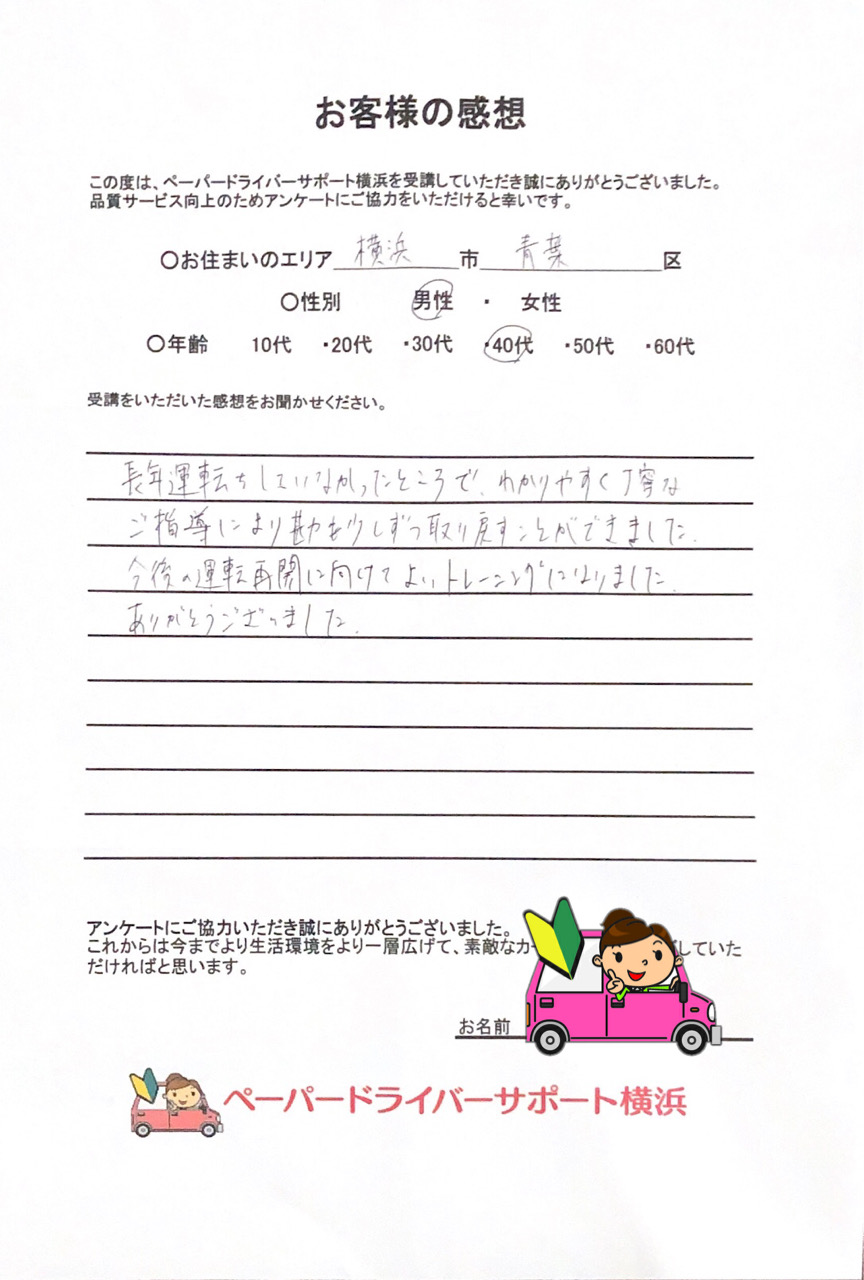 お客様の感想
この度は、ペーパードライバーサポート横浜を受講していただき誠にありがとうございました。
品質サービス向上のためアンケートにご協力をいただけると幸いです。
〇お住まいのエリア 横浜 市 青葉 区
〇性別 男性 ・ 女性
〇年齢 10代 ・20代 ・30代 ・40代 ・50代 ・60代
受講をいただいた感想をお聞かせください。
長年運転をしていなかったところで、わかりやすく丁寧な
ご指導により勘を少しずつ取り戻すことができました。
今後の運転再開に向けてよいトレーニングになりました。
ありがとうございました。
アンケートにご協力いただき誠にありがとうございました。
これからは今までより生活環境をより一層広げて、素敵なカ していた
だければと思います。
お名前
ペーパードライバーサポート横浜